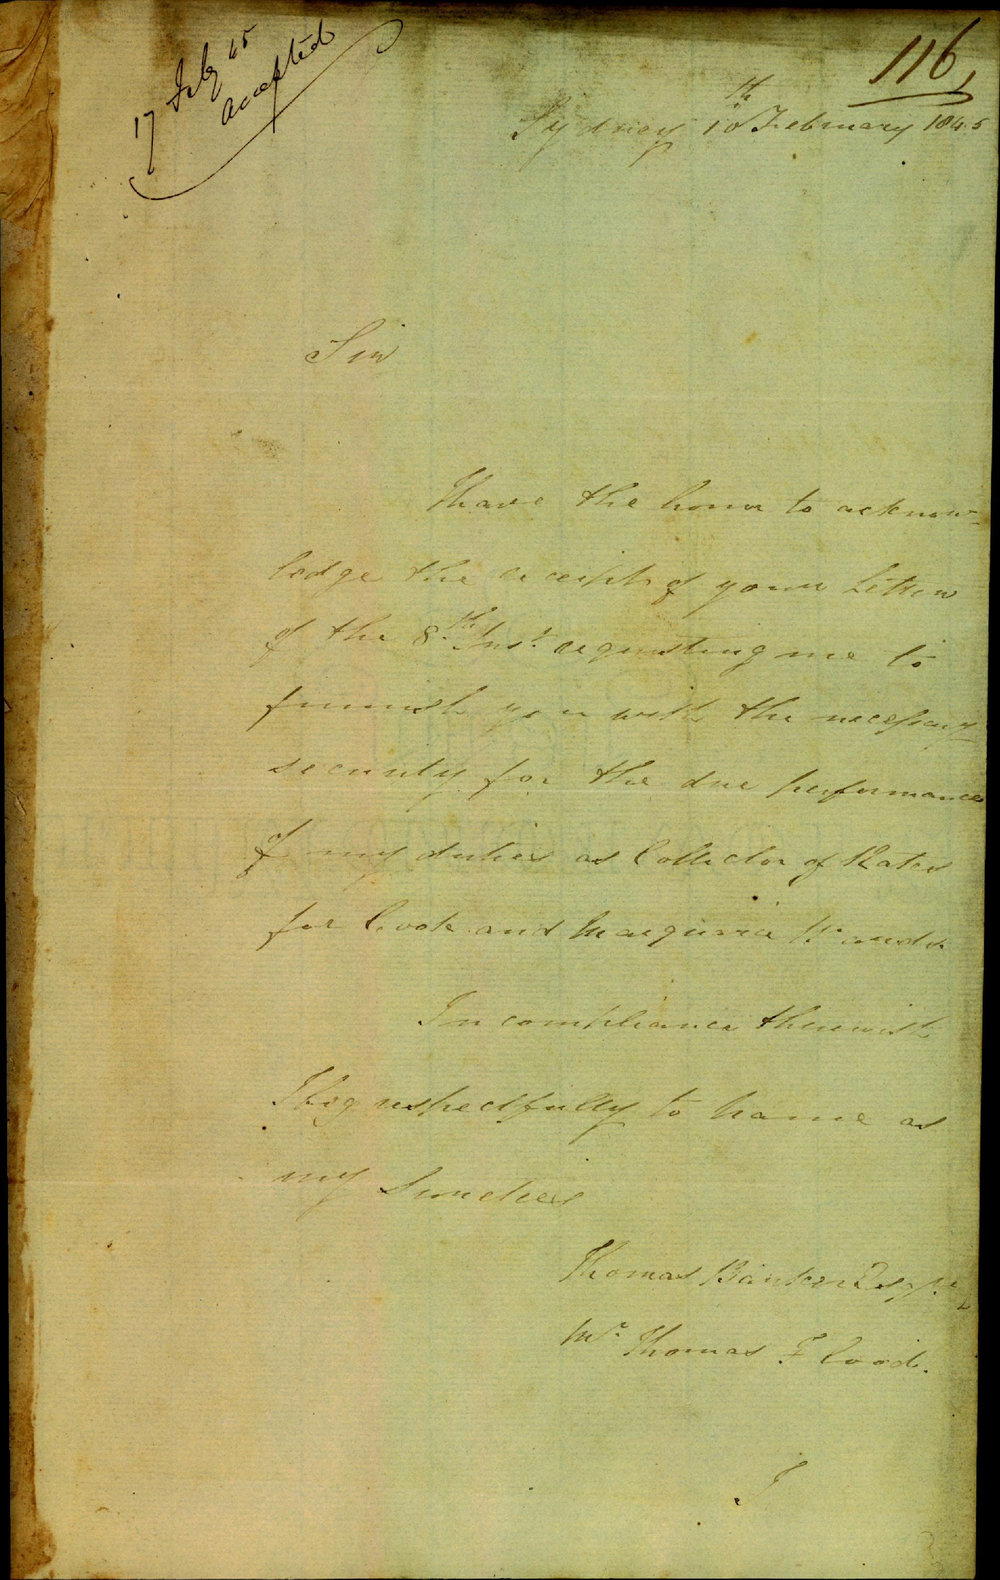 17 Feby 45
accepted
116,
Sydney 10th February 1845
Sir
I have the honor to acknow-
ledge the receipt of your Letter
of the 8th Inst. requesting me to
furnish you with the necessary
security for the due performance
of my duties as Collector of Rates
for Cook and Macquarie Wards
In compliance therewith
I beg respectfully to name as
my Sureties
Thomas Barker Esqre
Mr. Thomas Flood.
I